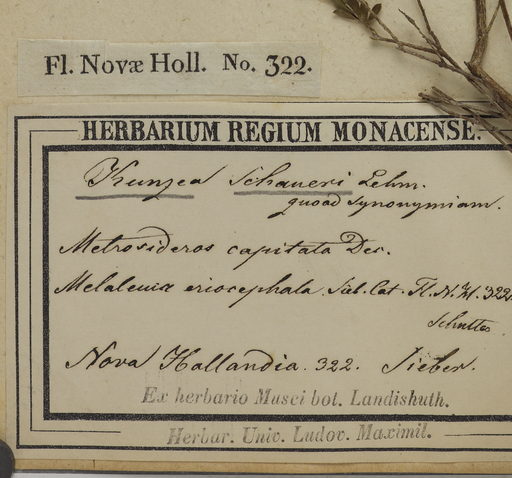 Fl. Novæ Holl. No. 322.
HERBARIUM REGIUM MONACENSE.
Kunzea Schaueri Lehm.
quoad Synonymiam.
Metrosideros capitata Dec.
Melaleuca eriocephala. Sieb. Cat. Fl. N. H. 322.
Nova Hollandia. 322. Sieber.
Ex herbario Musei bot. Landishuth.
Herbar. Univ. Ludov. Maximil.